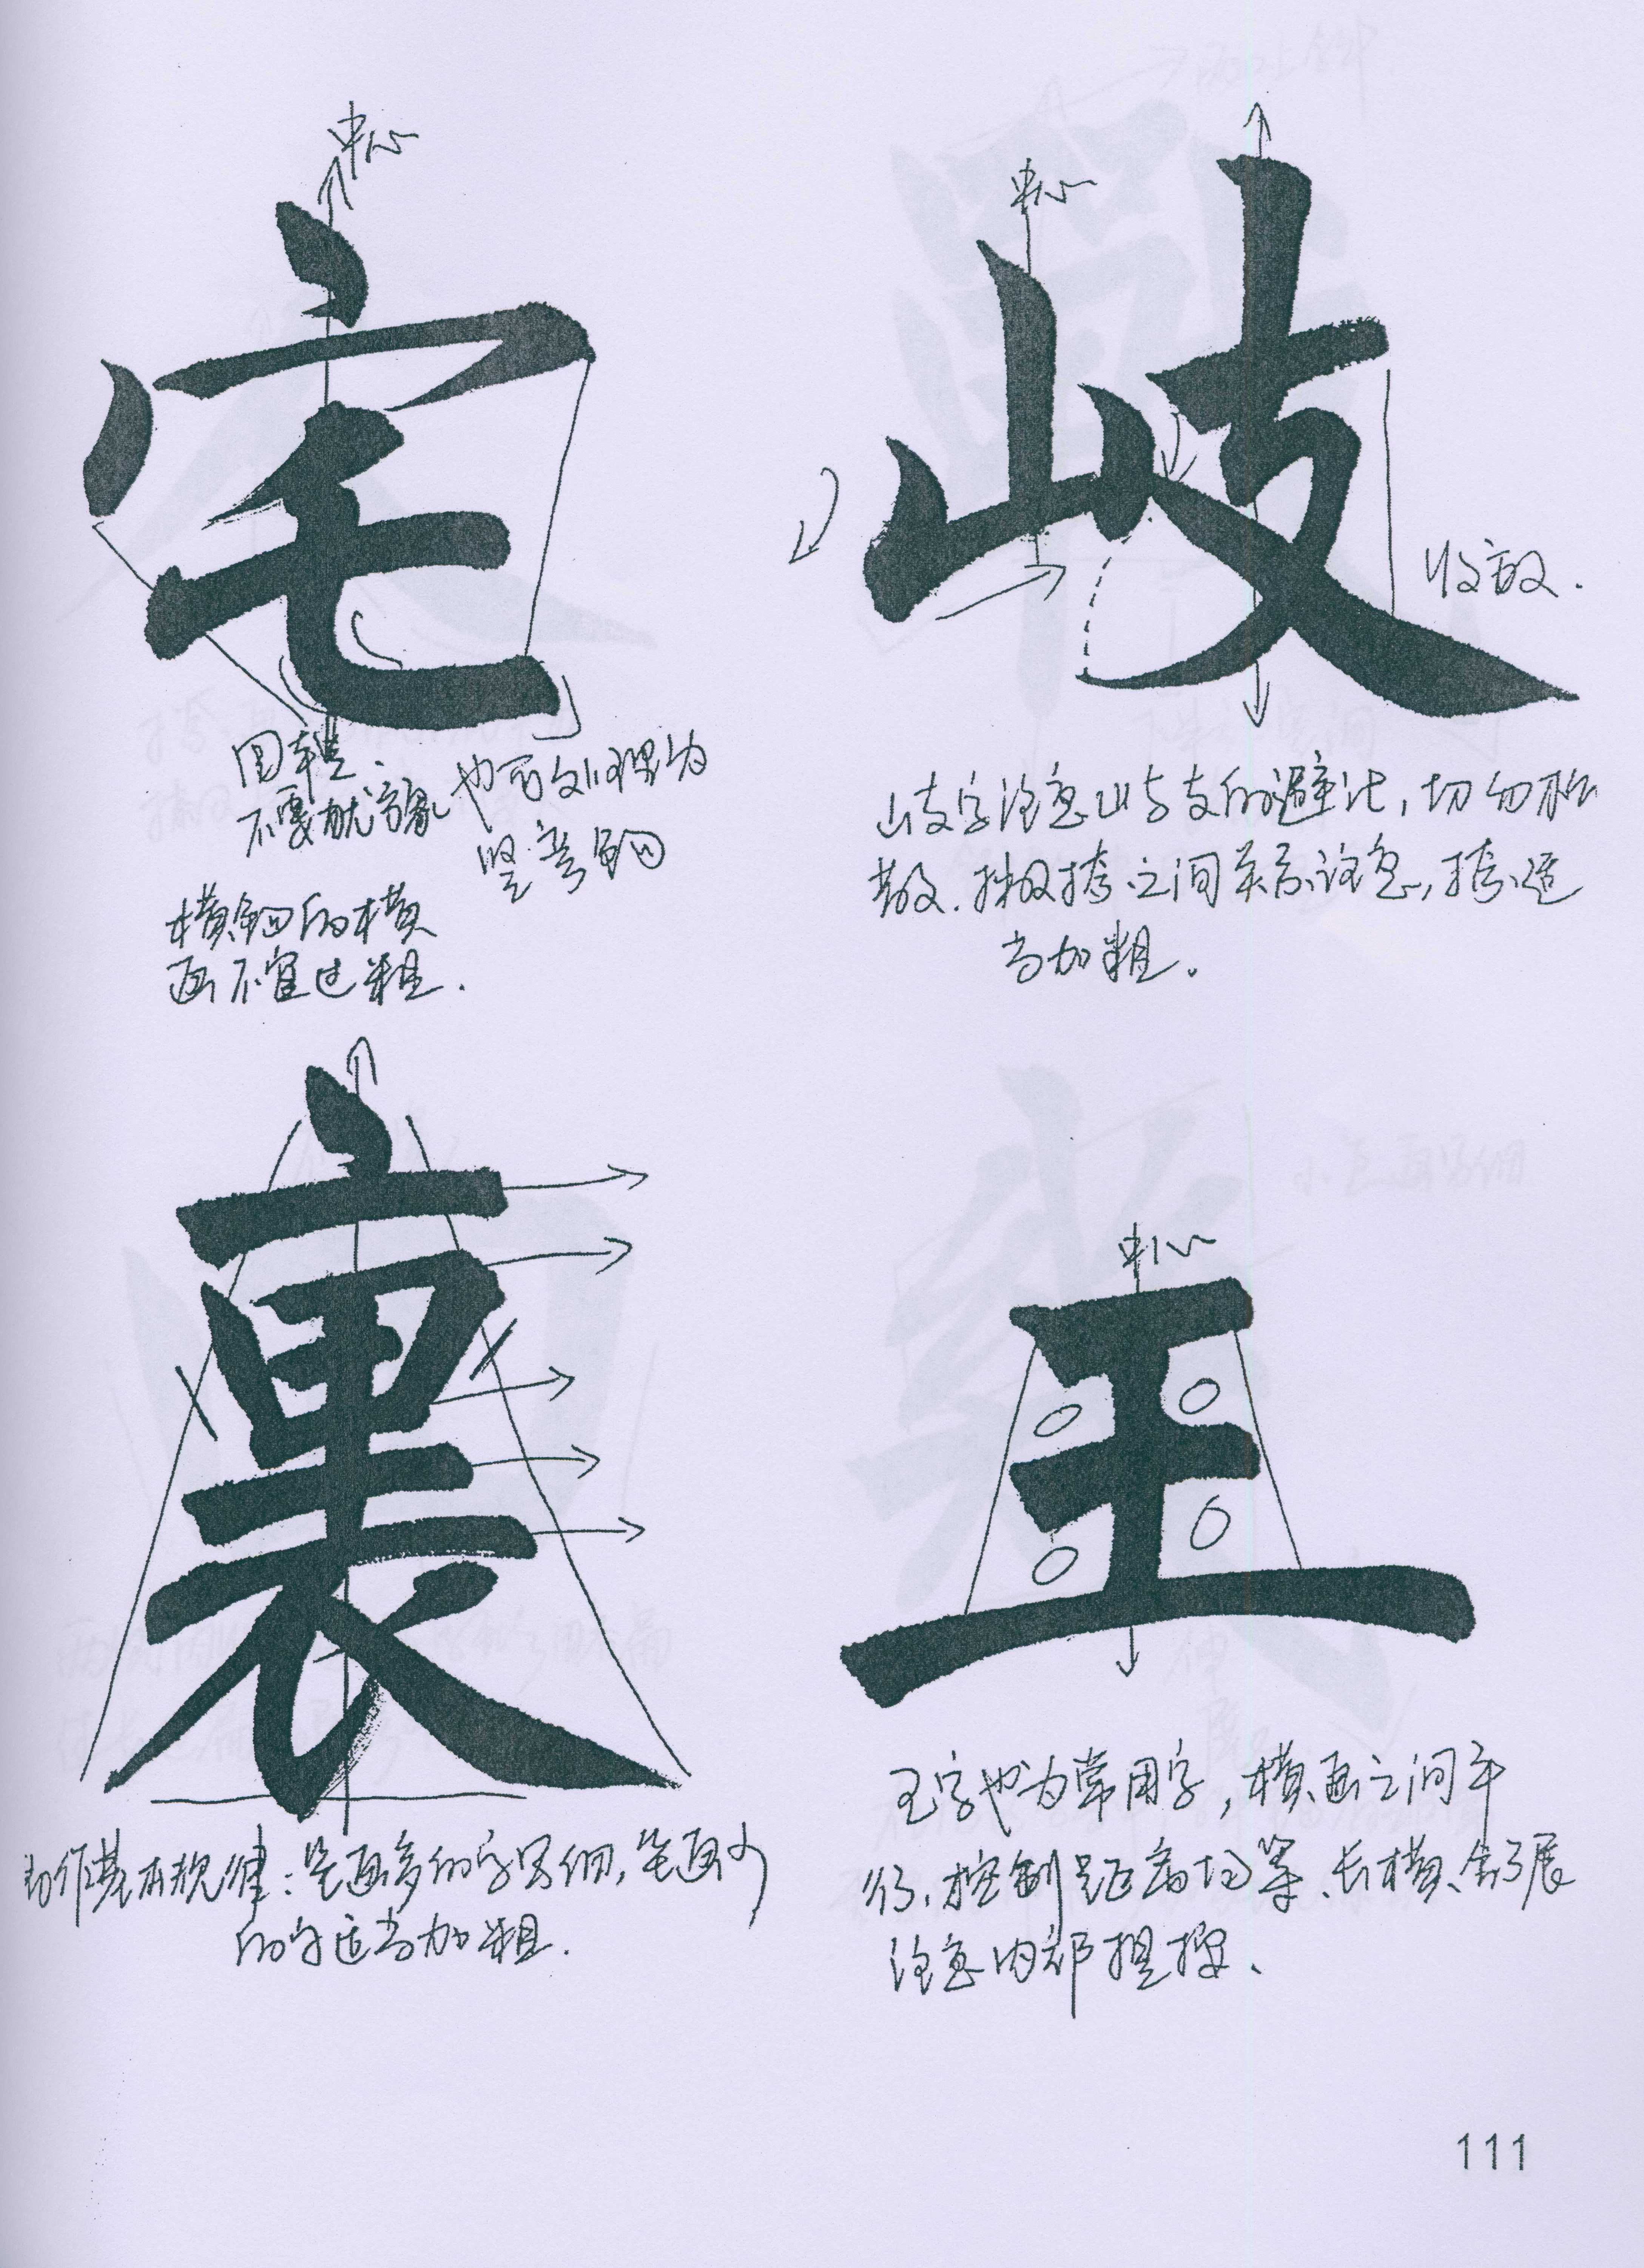 中心
宅
圆转、
不要就方象
也可处理为
竖弯钩
横钩的横
画不宜过粗.
中心
岐
收放.
岐字注意山与支的避让,切勿松
散.撇捺之间关系注意,捺适
当加粗.
裏
基本规律:笔画多的字写细,笔画少
的字适当加粗.
中心
王
王字也为常用字,横画之间平
行,控制距离均等、长横舒展
注意内部提按、
111